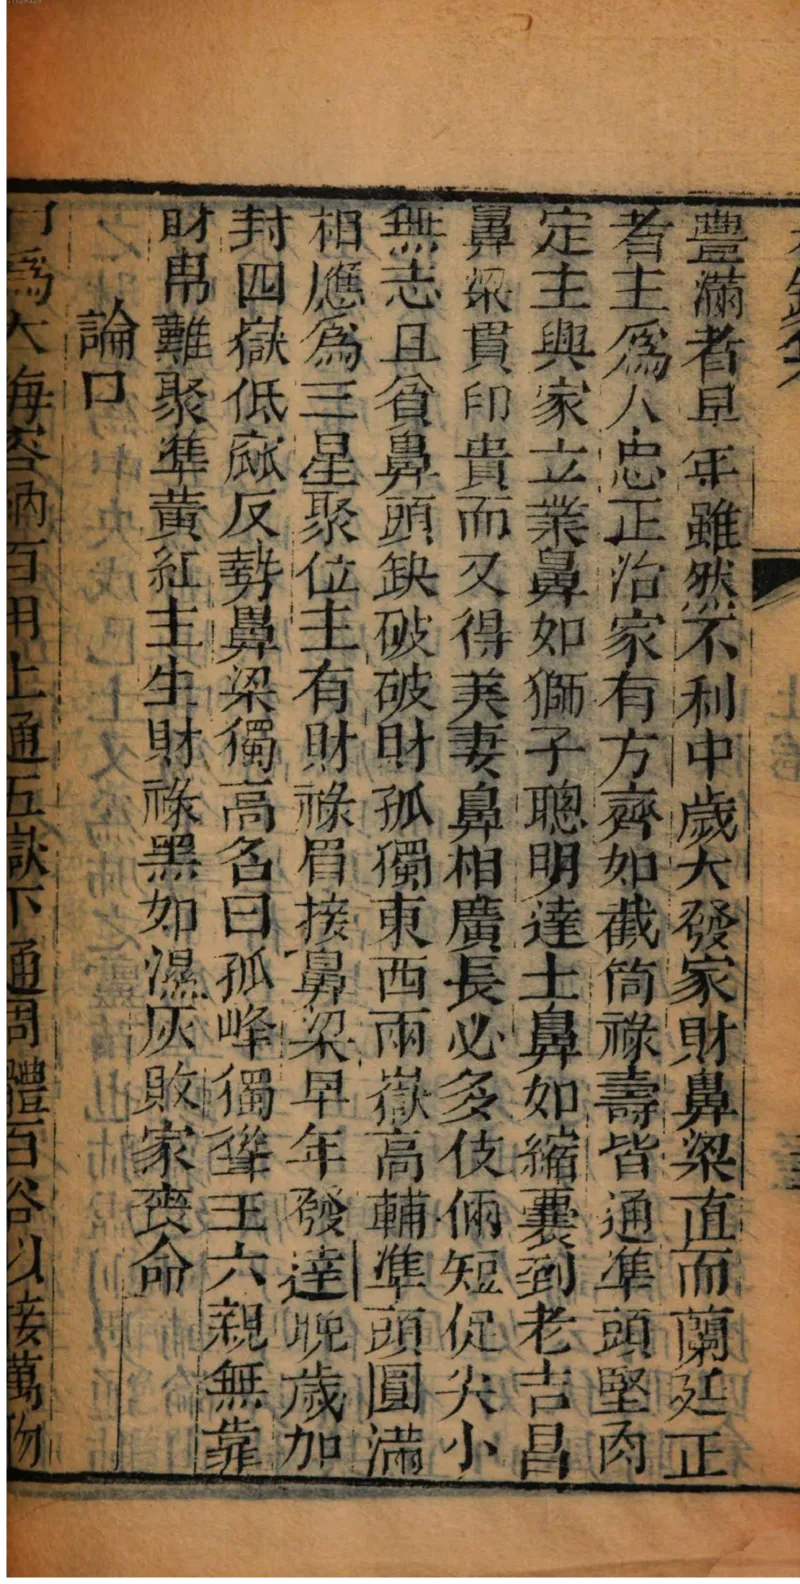 豊滿者早年雖然不利中歲大發家財鼻梁直而蘭廷正
者主爲人忠正治家有方齊如截筒祿壽皆通凖頭堅肉
定主與家立業鼻如獅子聰明達士鼻如縮囊到老吉昌
鼻梁貫印貴而又得美妻鼻相廣長必多伎倆短促尖小
無志且貧鼻頭缺破破財孤獨東西兩嶽高輔凖頭圓滿
相應爲三星聚位主有財祿眉接鼻梁早年發達晚歲加
封四嶽低㢈反勢鼻梁獨高名曰孤峰獨聳主六親無靠
財帛難聚凖黃紅主生財祿黑如濕灰敗家喪命
論口
口爲大海容納百川上通五嶽下通周體百谷以接萬物